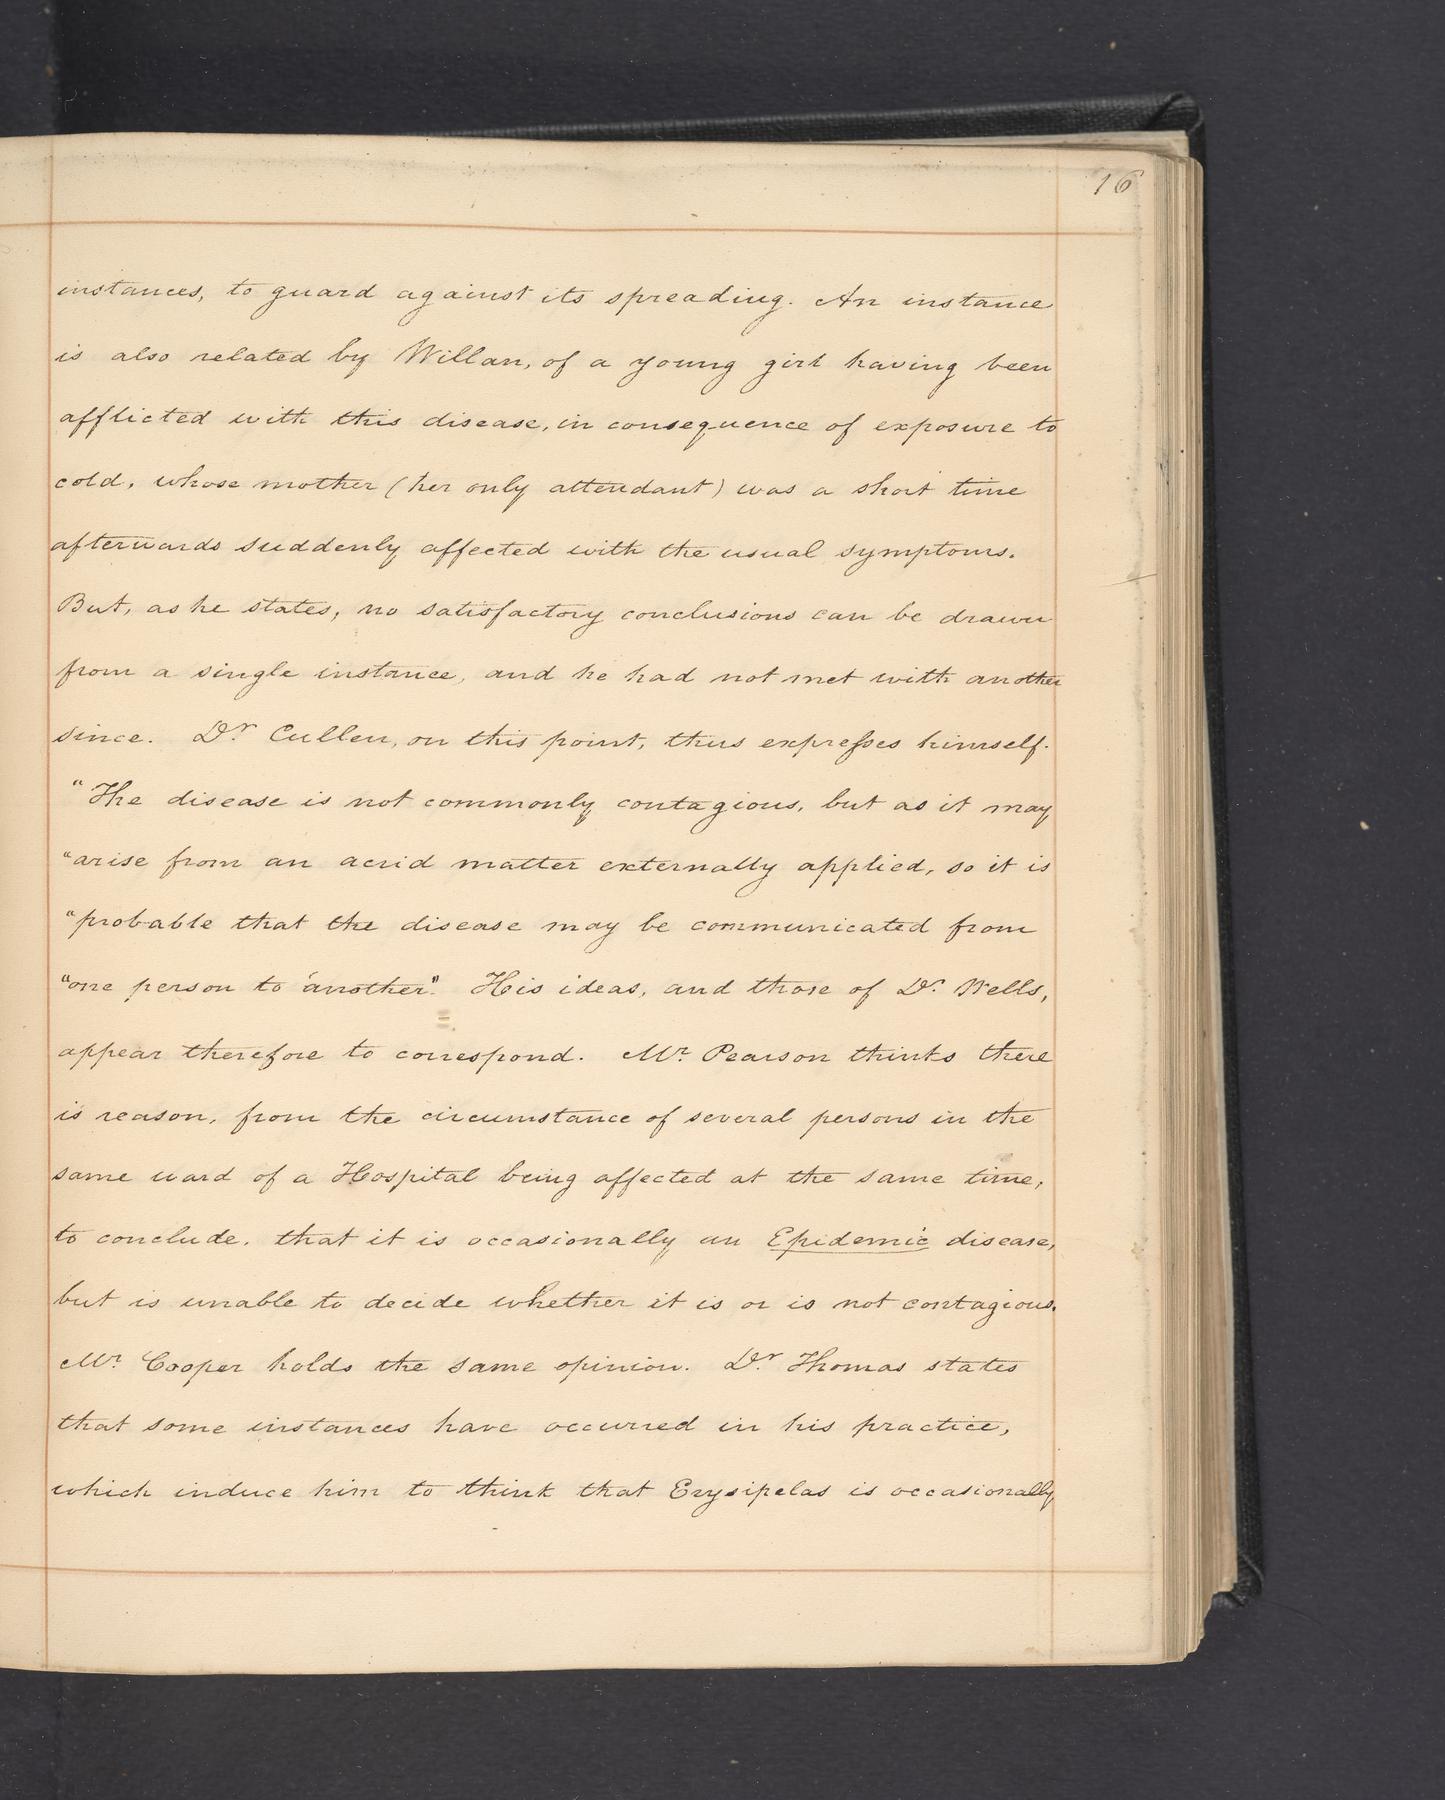 16
instances, to guard against its spreading. An instance
is also related by Willan, of a young girl having been
afflicted with this disease, in consequence of exposure to
cold, whose mother (her only attendant) was a short time
afterwards suddenly affected with the usual symptoms.
But, as he states, no satisfactory conclusions can be drawn
from a single instance, and he had not met with another
since. Dr. Cullen, on this point, thus expresses himself.
"The disease is not commonly contagious, but as it may
"arise from an acrid matter externally applied, so it is
"probable that the disease may be communicated from
"one person to another". His ideas, and those of Dr. Wells,
appear therefore to correspond. Mr. Pearson thinks there
is reason, from the circumstance of several persons in the
same ward of a Hospital being affected at the same time,
to conclude, that it is occasionally an Epidemic disease,
but is unable to decide whether it is or is not contagious.
Mr. Cooper holds the same opinion. Dr. Thomas states
that some instances have occurred in his practice,
which induce him to think that Erysipelas is occasionally